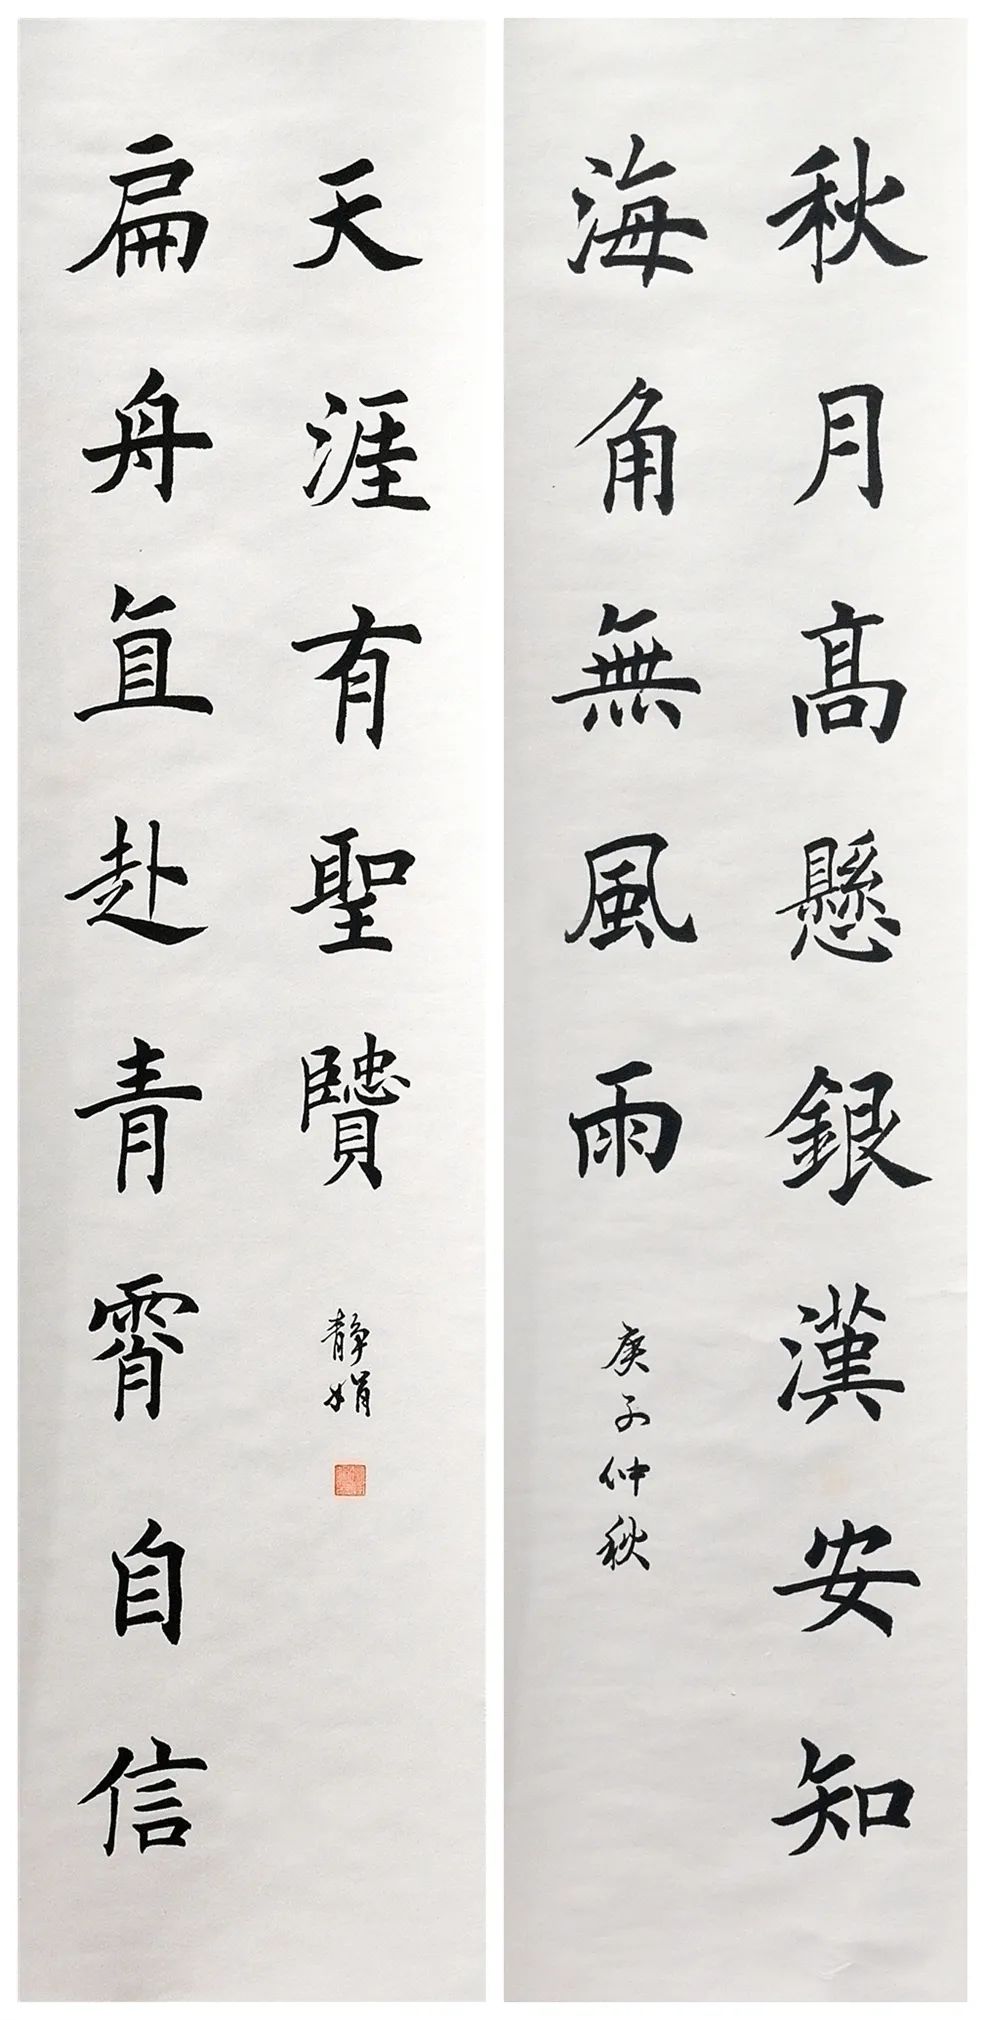 秋月髙懸銀漢安知
海角無風雨
庚子仲秋
扁舟直赴青霄自信
天涯有聖贒
静娟